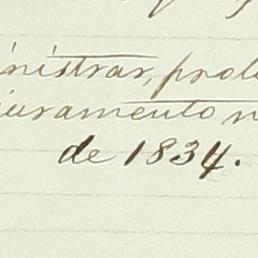 inistrar, prote
juramento n
de 1834.